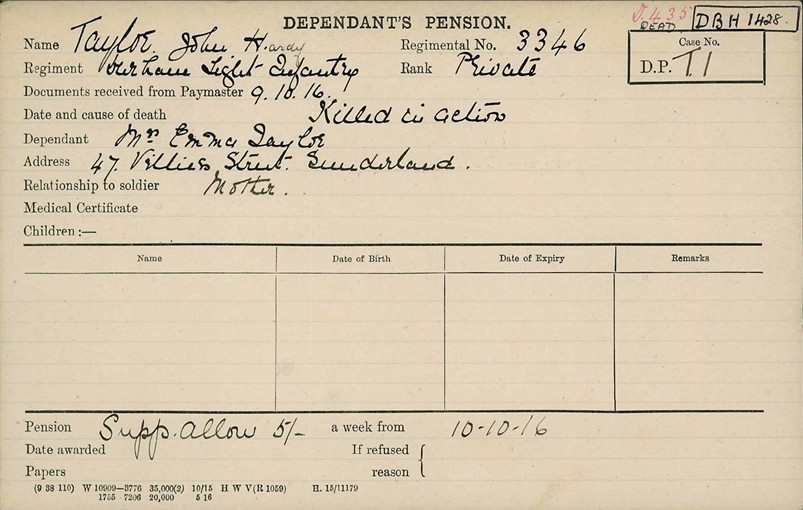 DEPENDANT'S PENSION.
J.435
DEAD
DBH 1428.
Name Taylor. John Hardy Regimental No. 3346
Case No.
Regiment Durham Light Infantry Rank Private
D.P. T1
Documents received from Paymaster 9.10.16.
Date and cause of death Killed in action
Dependant Mrs Emma Taylor
Address 47. Villiers Street. Sunderland.
Relationship to soldier Mother.
Medical Certificate
Children :—
Name Date of Birth Date of Expiry Remarks
Pension Supp. Allow 5/- a week from 10-10-16
Date awarded If refused
Papers reason
(9 38 110) W 10909—3776 35,000(2) 10/15 H W V(R 1059) H. 15/11179
1755 7206 20,000 5 16